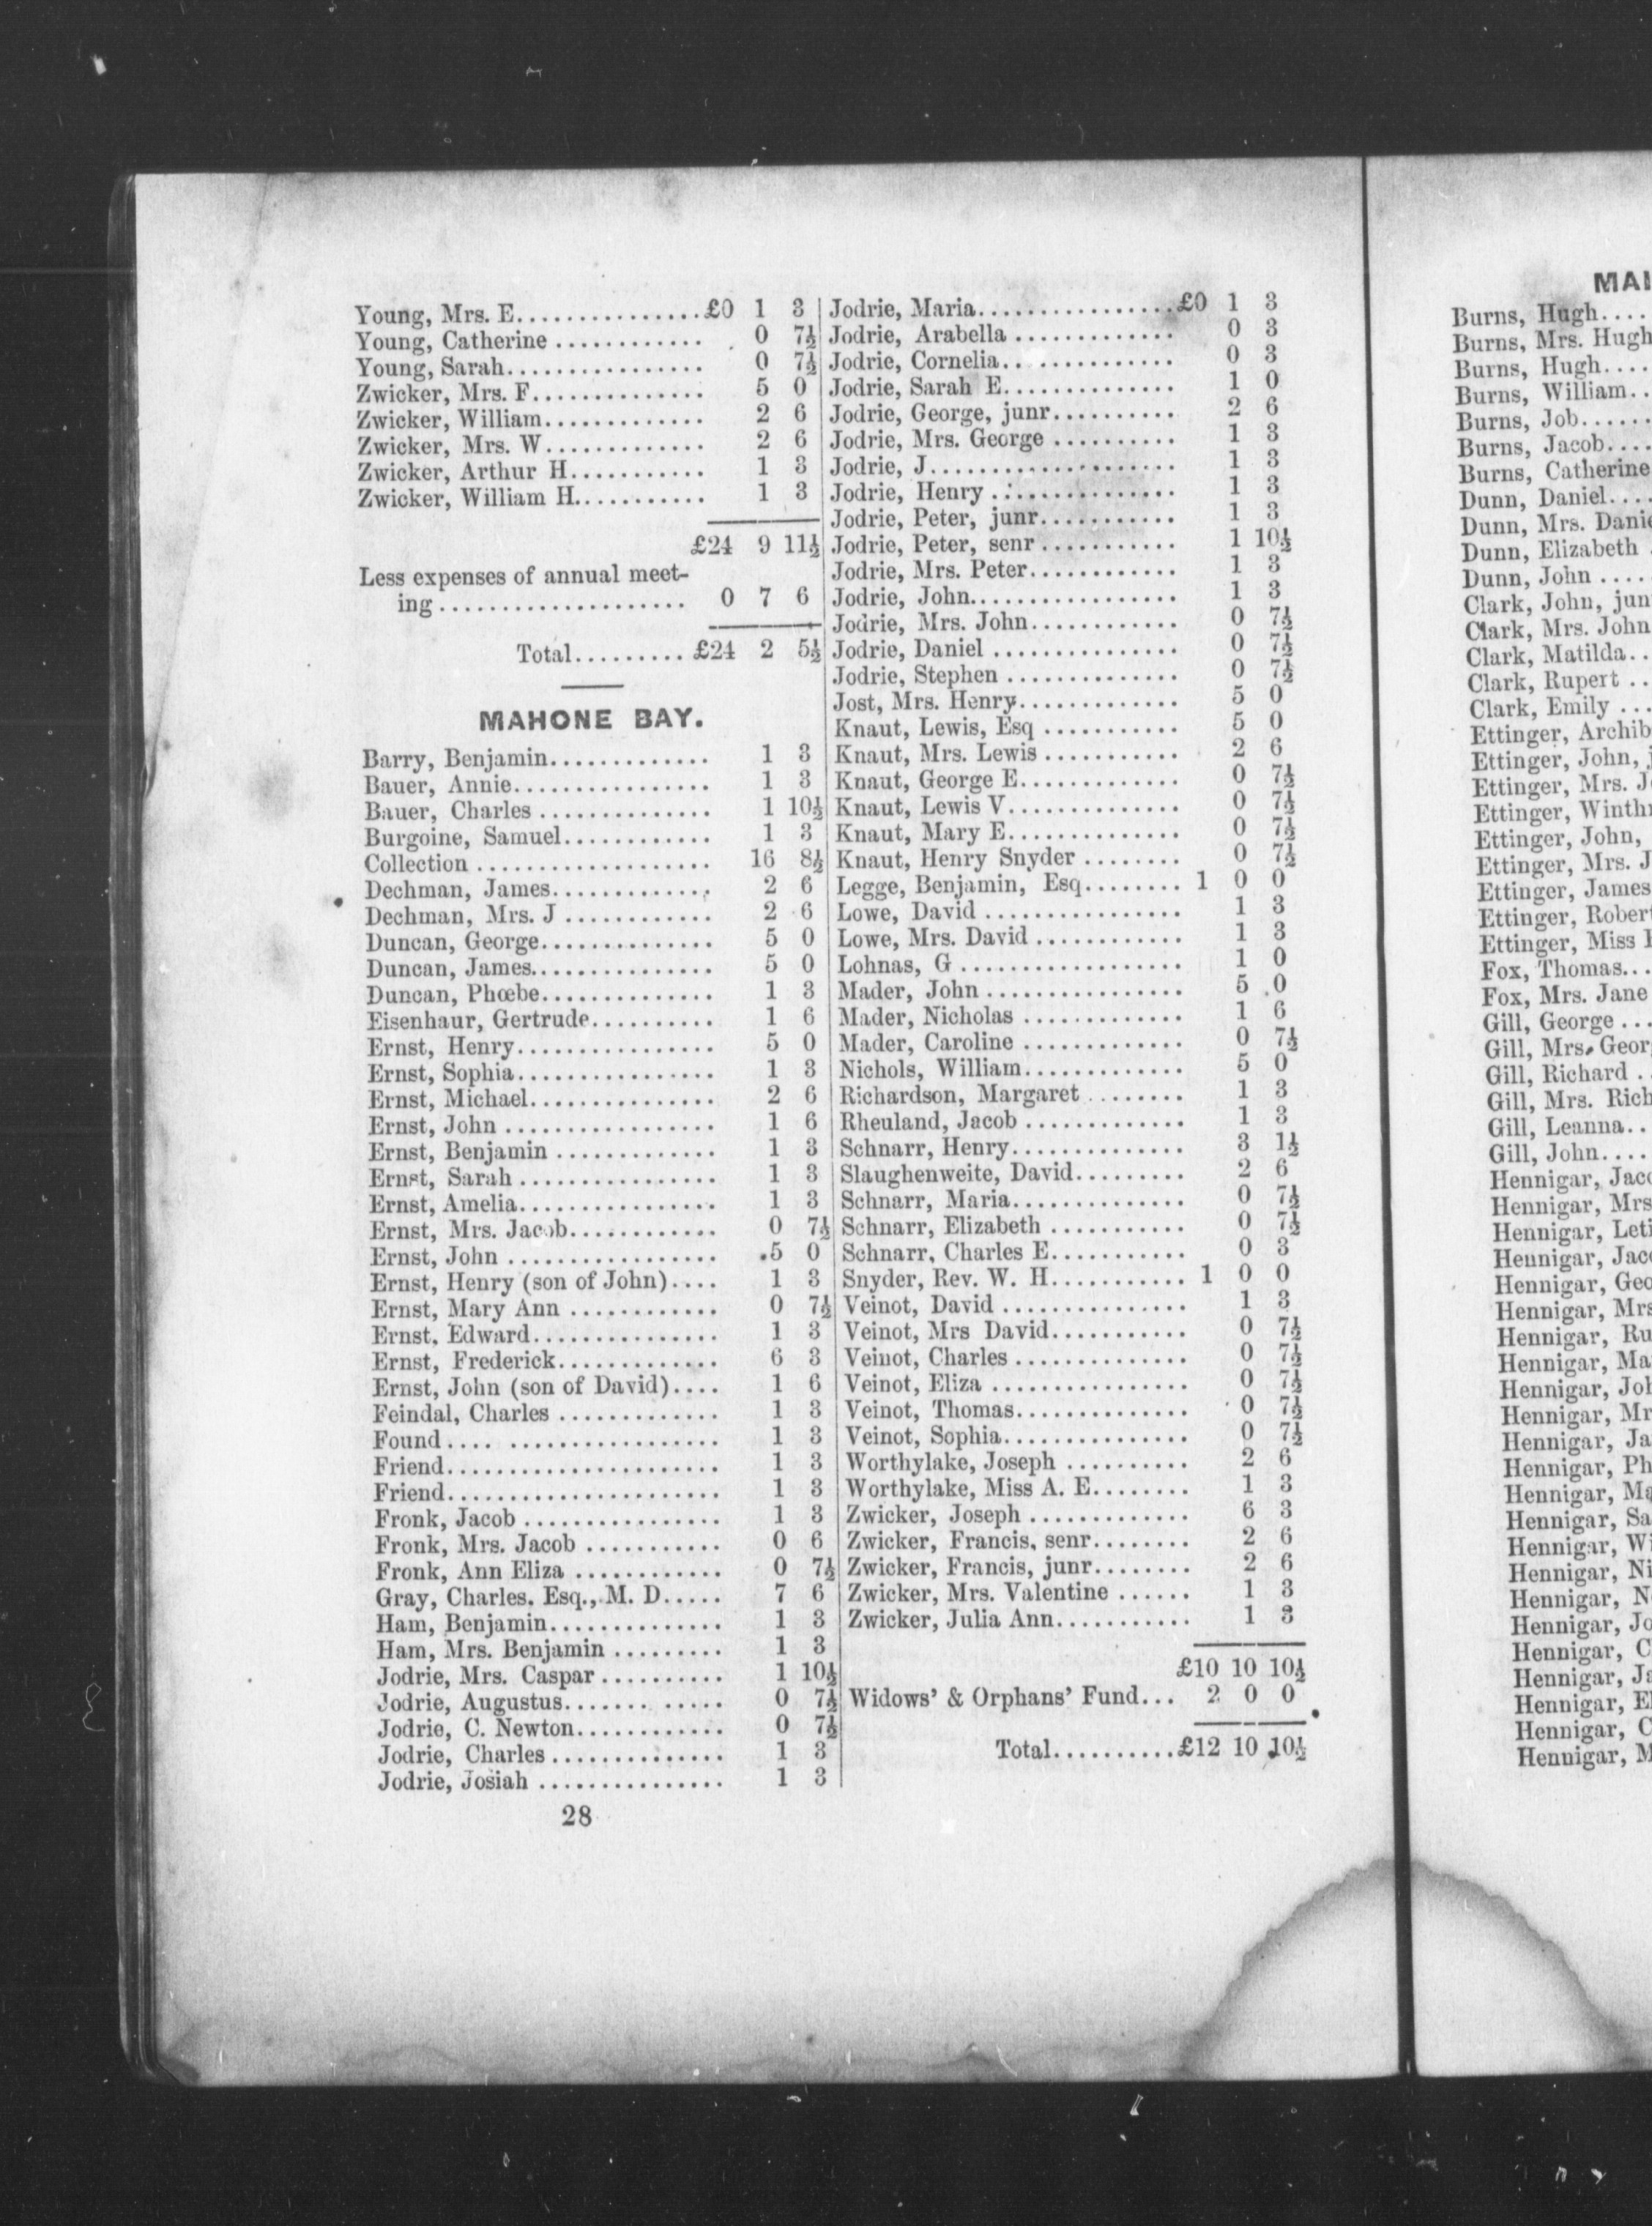 Young, Mrs. E...............£0 1 3
Young, Catherine ............ 0 7½
Young, Sarah................ 0 7½
Zwicker, Mrs. F.............. 5 0
Zwicker, William............. 2 6
Zwicker, Mrs. W............. 2 6
Zwicker, Arthur H........... 1 3
Zwicker, William H........... 1 3
£24 9 11½
Less expenses of annual meet-
ing................... 0 7 6
Total.........£24 2 5½
MAHONE BAY.
Barry, Benjamin............. 1 3
Bauer, Annie................ 1 3
Bauer, Charles .............. 1 10½
Burgoine, Samuel............ 1 3
Collection ................... 16 8½
Dechman, James............. 2 6
Dechman, Mrs. J ............ 2 6
Duncan, George.............. 5 0
Duncan, James............... 5 0
Duncan, Phœbe.............. 1 3
Eisenhaur, Gertrude.......... 1 6
Ernst, Henry................ 5 0
Ernst, Sophia................ 1 3
Ernst, Michael............... 2 6
Ernst, John ................. 1 6
Ernst, Benjamin ............. 1 3
Ernst, Sarah ................ 1 3
Ernst, Amelia................ 1 3
Ernst, Mrs. Jacob............ 0 7½
Ernst, John ................. 5 0
Ernst, Henry (son of John).... 1 3
Ernst, Mary Ann ............ 0 7½
Ernst, Edward............... 1 3
Ernst, Frederick............. 6 3
Ernst, John (son of David).... 1 6
Feindal, Charles ............. 1 3
Found.... ................. 1 3
Friend...................... 1 3
Friend...................... 1 3
Fronk, Jacob ................ 1 3
Fronk, Mrs. Jacob ........... 0 6
Fronk, Ann Eliza ............ 0 7½
Gray, Charles, Esq., M. D..... 7 6
Ham, Benjamin.............. 1 3
Ham, Mrs. Benjamin ......... 1 3
Jodrie, Mrs. Caspar .......... 1 10½
Jodrie, Augustus....... ..... 0 7½
Jodrie, C. Newton............ 0 7½
Jodrie, Charles .............. 1 3
Jodrie, Josiah ............... 1 3
28
Jodrie, Maria................£0 1 3
Jodrie, Arabella ............. 0 3
Jodrie, Cornelia.. ............ 0 3
Jodrie, Sarah E.............. 1 0
Jodrie, George, junr.......... 2 6
Jodrie, Mrs. George .......... 1 3
Jodrie, J.................... 1 3
Jodrie, Henry ............... 1 3
Jodrie, Peter, junr........... 1 3
Jodrie, Peter, senr ........... 1 10½
Jodrie, Mrs. Peter............ 1 3
Jodrie, John................. 1 3
Jodrie, Mrs. John............ 0 7½
Jodrie, Daniel ............... 0 7½
Jodrie, Stephen .............. 0 7½
Jost, Mrs. Henry............. 5 0
Knaut, Lewis, Esq ........... 5 0
Knaut, Mrs. Lewis ........... 2 6
Knaut, George E............. 0 7½
Knaut, Lewis V.............. 0 7½
Knaut, Mary E.............. 0 7½
Knaut, Henry Snyder ........ 0 7½
Legge, Benjamin, Esq........ 1 0 0
Lowe, David ................ 1 3
Lowe, Mrs. David ............ 1 3
Lohnas, G .................. 1 0
Mader, John ................ 5 0
Mader, Nicholas ............. 1 6
Mader, Caroline ............. 0 7½
Nichols, William............. 5 0
Richardson, Margaret ........ 1 3
Rheuland, Jacob ............. 1 3
Schnarr, Henry.............. 3 1½
Slaughenweite, David......... 2 6
Schnarr, Maria.............. 0 7½
Schnarr, Elizabeth ........... 0 7½
Schnarr, Charles E........... 0 3
Snyder, Rev. W. H........... 1 0 0
Veinot, David ............... 1 3
Veinot, Mrs David........... 0 7½
Veinot, Charles .............. 0 7½
Veinot, Eliza ................ 0 7½
Veinot, Thomas.............. 0 7½
Veinot, Sophia............... 0 7½
Worthylake, Joseph .......... 2 6
Worthylake, Miss A. E........ 1 3
Zwicker, Joseph ............. 6 3
Zwicker, Francis, senr........ 2 6
Zwicker, Francis, junr........ 2 6
Zwicker, Mrs. Valentine ...... 1 3
Zwicker, Julia Ann........... 1 3
£10 10 10½
Widows' & Orphans' Fund... 2 0 0
Total..........£12 10 10½
MAI
Burns, Hugh....
Burns, Mrs. Hugh
Burns, Hugh....
Burns, William..
Burns, Job......
Burns, Jacob....
Burns, Catherine
Dunn, Daniel....
Dunn, Mrs. Danie
Dunn, Elizabeth
Dunn, John ....
Clark, John, jun
Clark, Mrs. John
Clark, Matilda..
Clark, Rupert ..
Clark, Emily ...
Ettinger, Archib
Ettinger, John, j
Ettinger, Mrs. J
Ettinger, Winth
Ettinger, John,
Ettinger, Mrs. J
Ettinger, James
Ettinger, Robert
Ettinger, Miss
Fox, Thomas...
Fox, Mrs. Jane
Gill, George ...
Gill, Mrs. Geor
Gill, Richard .
Gill, Mrs. Rich
Gill, Leanna..
Gill, John....
Hennigar, Jaco
Hennigar, Mrs
Hennigar, Leti
Hennigar, Jaco
Hennigar, Geo
Hennigar, Mrs
Hennigar, Ru
Hennigar, Ma
Hennigar, Joh
Hennigar, Mr
Hennigar, Ja
Hennigar, Ph
Hennigar, Ma
Hennigar, Sa
Hennigar, Wi
Hennigar, Ni
Hennigar, N
Hennigar, Jo
Hennigar, C
Hennigar, Ja
Hennigar, El
Hennigar, C
Hennigar, M